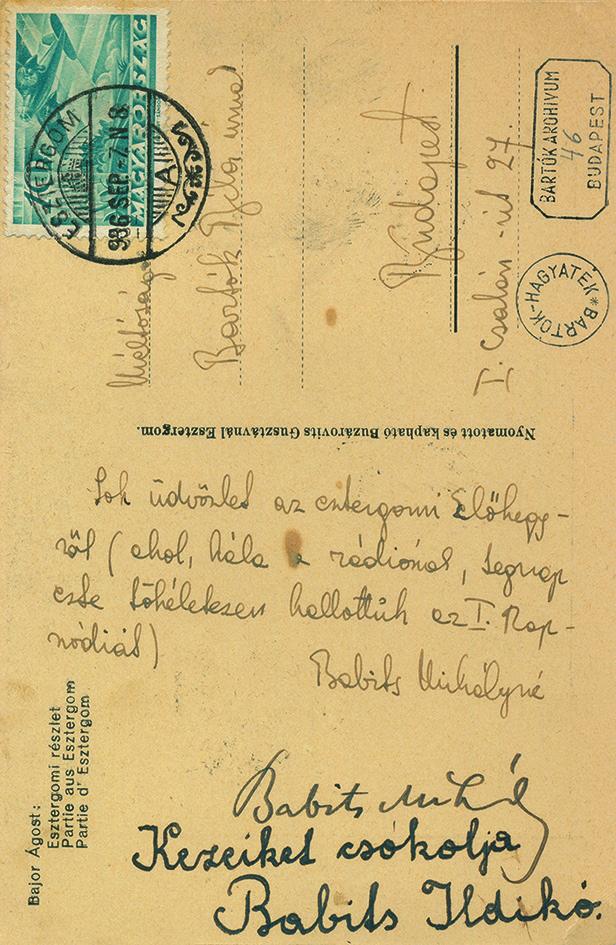 MAGYARORSZÁG
ESZTERGOM
936 SEP -7. N 8
A
BARTÓK ARCHIVUM
46
BUDAPEST
BARTÓK-HAGYATÉK *
Bartók Béla úrnak
Budapest.
I. Csalán-út 27.
Nyomatott és kapható Buzárovits Gusztávnál Esztergom.
Sok üdvözlet az esztergomi Előhegy-
ről (ahol, hála a rádiónak, tegnap
este tökéletesen hallottuk az I. Rap-
szódiát)
Babits Mihályné
Babits Mihály
Kezeiket csókolja
Babits Ildikó.
Bajor Ágost:
Esztergomi részlet
Partie aus Esztergom
Partie d' Esztergom